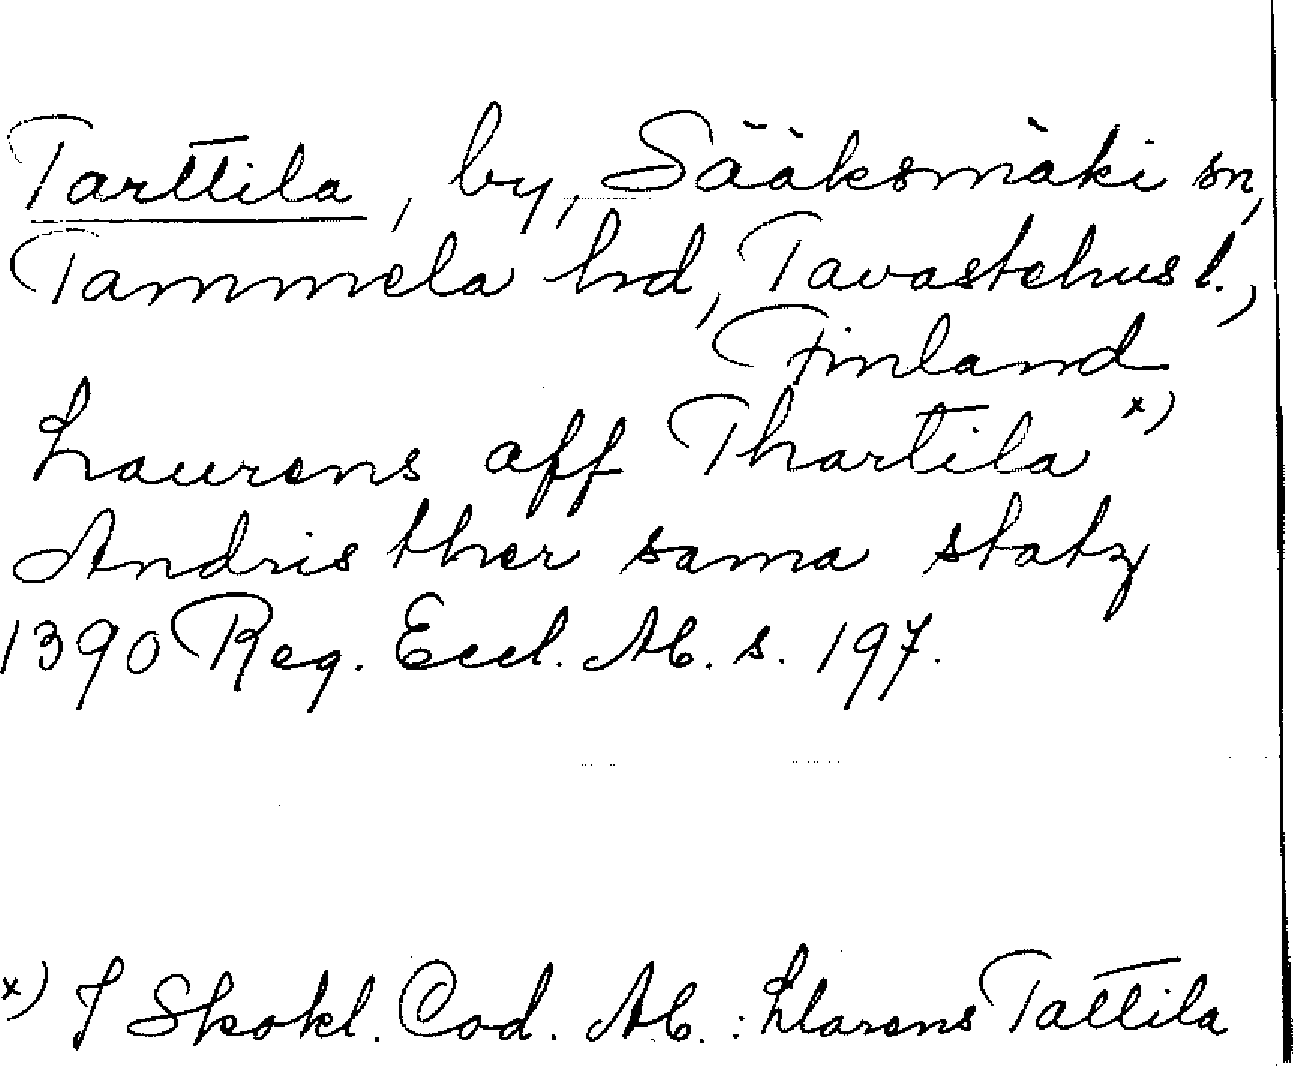 Tarttila, by, Sääksmäki sn,
Tammela hd, Tavastehus l.,
Finland
Laurens aff Thartila x)
Andris ther sama statz
1390 Reg. Eccl. Ab. s. 197.
x) I Skokl. Cod. Ab. : Llarens Tattila